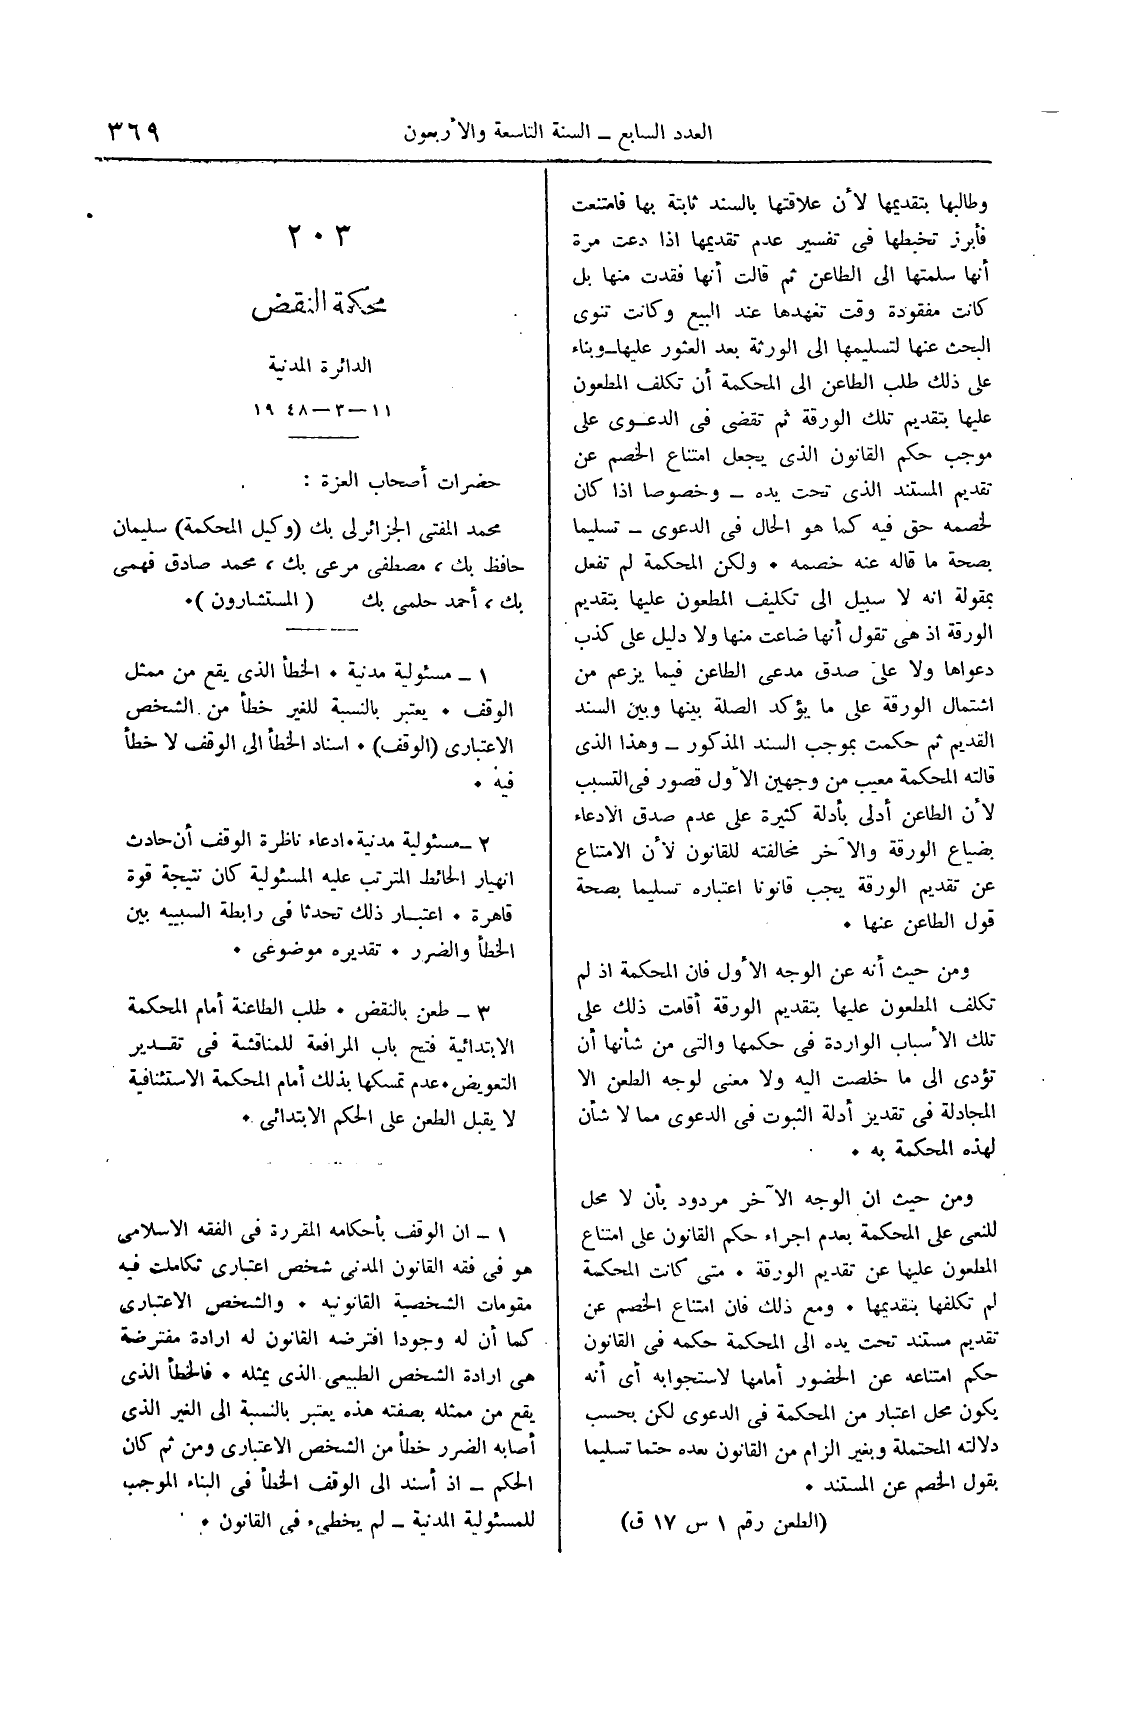 العدد السابع ــ السنة التاسعة والأربعون
٣٦٩
وطالبها بتقديمها لأن علاقتها بالسند ثابتة بها فامتنعت
فأبرز تخبطها فى تفسير عدم تقديمها اذا دعت مرة
أنها سلمتها الى الطاعن ثم قالت أنها فقدت منها بل
كانت مفقودة وقت تعهدها عند البيع وكانت تنوى
البحث عنها لتسليمها الى الورثة بعد العثور عليها ــ وبناء
على ذلك طلب الطاعن الى المحكمة أن تكلف المطعون
عليها بتقديم تلك الورقة ثم تقضى فى الدعوى على
موجب حكم القانون الذى يجعل امتناع الخصم عن
تقديم المستند الذى تحت يده ــ وخصوصا اذا كان
لخصمه حق فيه كما هو الحال فى الدعوى ــ تسليما
بصحة ما قاله عنه خصمه ٠ ولكن المحكمة لم تفعل
بمقولة انه لا سبيل الى تكليف المطعون عليها بتقديم
الورقة اذ هى تقول أنها ضاعت منها ولا دليل على كذب
دعواها ولا على صدق مدعى الطاعن فيما يزعم من
اشتمال الورقة على ما يؤكد الصلة بينها وبين السند
القديم ثم حكمت بموجب السند المذكور ــ وهذا الذى
قالته المحكمة معيب من وجهين الأول قصور فى التسبب
لأن الطاعن أدلى بأدلة كثيرة على عدم صدق الادعاء
بضياع الورقة والآخر مخالفته للقانون لأن الامتناع
عن تقديم الورقة يجب قانونا اعتباره تسليما بصحة
قول الطاعن عنها ٠
ومن حيث أنه عن الوجه الأول فان المحكمة اذ لم
تكلف المطعون عليها بتقديم الورقة أقامت ذلك على
تلك الأسباب الواردة فى حكمها والتى من شأنها أن
تؤدى الى ما خلصت اليه ولا معنى لوجه الطعن الا
المجادلة فى تقدير أدلة الثبوت فى الدعوى مما لا شأن
لهذه المحكمة به ٠
ومن حيث ان الوجه الآخر مردود بأن لا محل
للنعى على المحكمة بعدم اجراء حكم القانون على امتناع
المطعون عليها عن تقديم الورقة ٠ متى كانت المحكمة
لم تكلفها بتقديمها ٠ ومع ذلك فان امتناع الخصم عن
تقديم مستند تحت يده الى المحكمة حكمه فى القانون
حكم امتناعه عن الحضور أمامها لاستجوابه أى أنه
يكون محل اعتبار من المحكمة فى الدعوى لكن بحسب
دلالته المحتملة وبغير الزام من القانون بعده حتما تسليما
بقول الخصم عن المستند ٠
(الطعن رقم ١ س ١٧ ق)
٢٠٣
محكمة النقض
الدائرة المدنية
١١ــ٣ــ١٩٤٨
حضرات أصحاب العزة :
محمد المفتى الجزائرلى بك (وكيل المحكمة) سليمان
حافظ بك ، مصطفى مرعى بك ، محمد صادق فهمى
بك ، أحمد حلمى بك ( المستشارون )٠
١ ــ مسئولية مدنية ٠ الخطأ الذى يقع من ممثل
الوقف ٠ يعتبر بالنسبة للغير خطأ من الشخص
الاعتبارى (الوقف) ٠ اسناد الخطأ الى الوقف لا خطأ
فيه ٠
٢ ــ مسئولية مدنية ٠ ادعاء ناظرة الوقف أن حادث
انهيار الحائط المترتب عليه المسئولية كان نتيجة قوة
قاهرة ٠ اعتبار ذلك تحدثا فى رابطة السببيه بين
الخطأ والضرر ٠ تقديره موضوعى ٠
٣ ــ طعن بالنقض ٠ طلب الطاعنة أمام المحكمة
الابتدائية فتح باب المرافعة للمناقشة فى تقدير
التعويض ٠ عدم تمسكها بذلك أمام المحكمة الاستئنافية
لا يقبل الطعن على الحكم الابتدائى ٠
١ ــ ان الوقف بأحكامه المقررة فى الفقه الاسلامى
هو فى فقه القانون المدنى شخص اعتبارى تكاملت فيه
مقومات الشخصية القانونيه ٠ والشخص الاعتبارى
كما أن له وجودا افترضه القانون له ارادة مفترضة
هى ارادة الشخص الطبيعى الذى يمثله ٠ فالخطأ الذى
يقع من ممثله بصفته هذه يعتبر بالنسبة الى الغير الذى
أصابه الضرر خطأ من الشخص الاعتبارى ومن ثم كان
الحكم ــ اذ أسند الى الوقف الخطأ فى البناء الموجب
للمسئولية المدنية ــ لم يخطىء فى القانون ٠